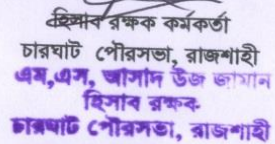 হিসাব রক্ষক কর্মকর্তা
চারঘাট পৌরসভা, রাজশাহী
এম,এস, আসাদ উজ জামান
হিসাব রক্ষক
চারঘাট পৌরসভা, রাজশাহী